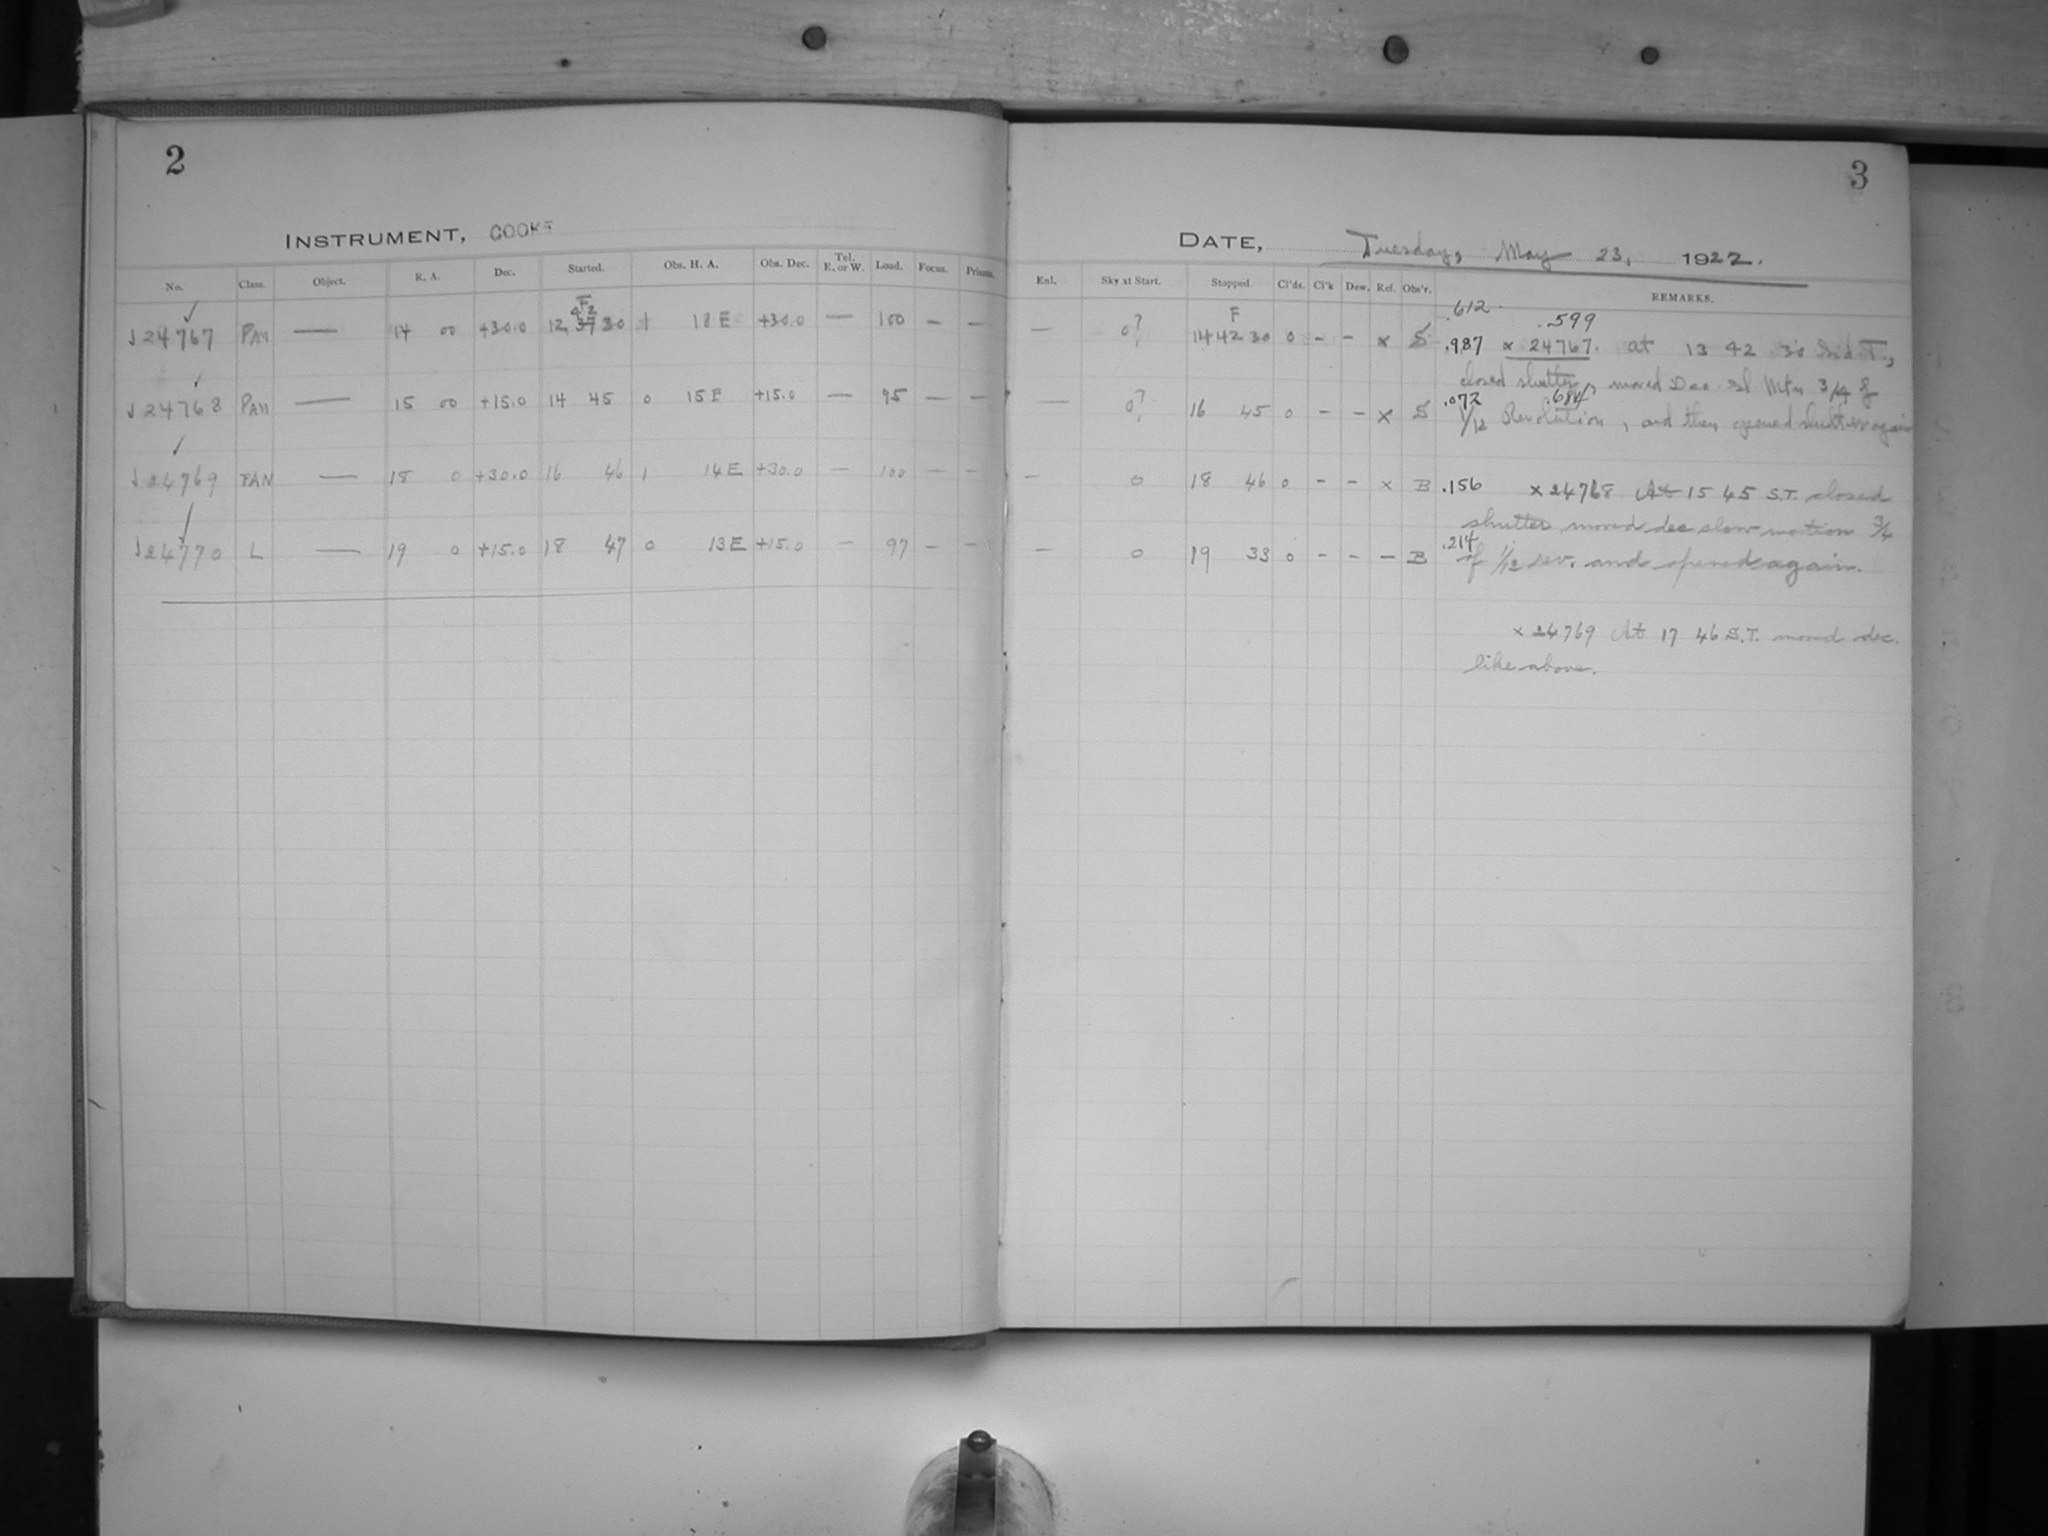 2
INSTRUMENT, COOKE
No. Class. Object. R. A. Dec. Started. Obs. H. A. Obs. Dec. Tel. E. or W. Load. Focus. Prisms.
F
42
√24767 PAN — 14 00 +30.0 12 37 30 1 18 E +30.0 — 100 – –
√24768 PAN — 15 00 +15.0 14 45 0 15 E +15.0 — 95 – –
√24769 PAN — 18 0 +30.0 16 46 1 14 E +30.0 — 100 – –
√24770 L — 19 0 +15.0 18 47 0 13 E +15.0 – 97 – –
3
DATE, Tuesday, May 23, 1922.
Enl. Sky at Start. Stopped. Cl'ds. Cl'k Dew. Ref. Obs'r. REMARKS.
F .612 .599
— 0? 14 42 30 0 – – x S .987 x 24767. at 13 42 30 Sid T.,
closed shutter, moved Dec. Sl Mtn 3/4 of
— 0? 16 45 0 – – x S .072 .684
1/12 Revolution, and then opened shutter again
– 0 18 46 0 – – x B .156 x 24768 At 15 45 S.T. closed
shutter, moved dec slow motion 3/4
– 0 19 33 0 – – – B .214 of 1/12 rev. and opened again.
x 24769 At 17 46 S.T. moved dec.
like above.